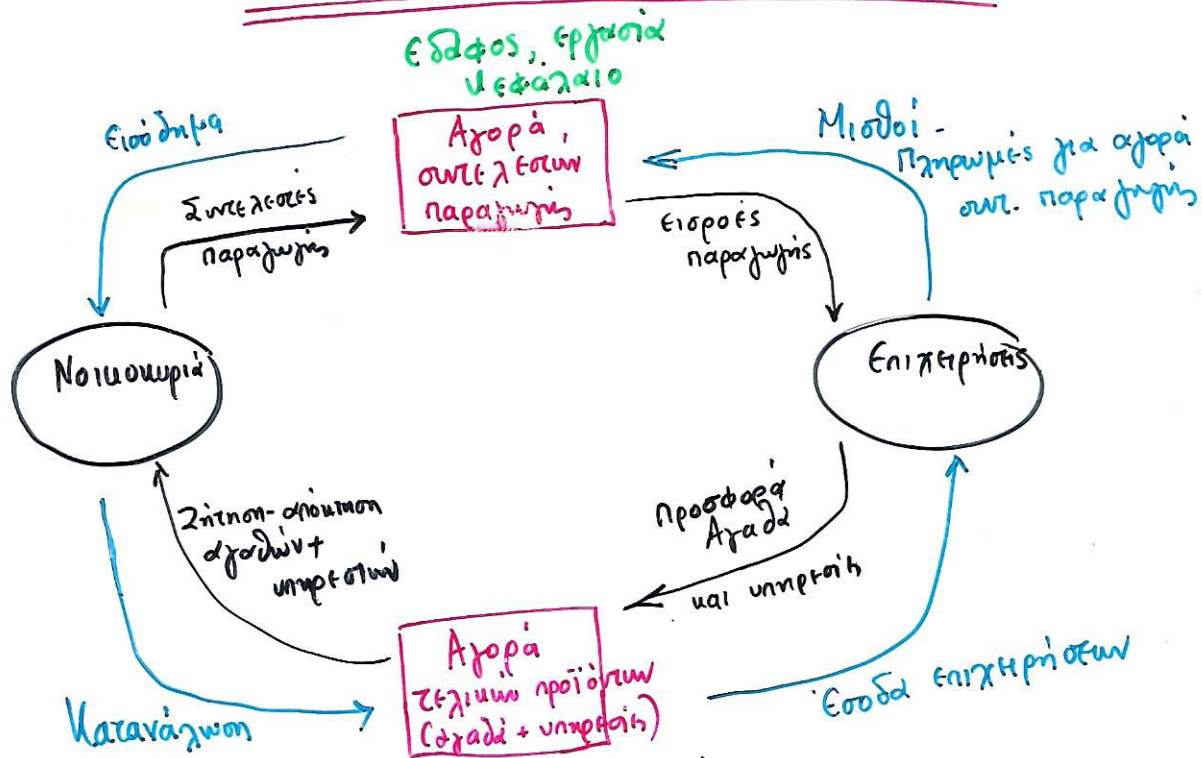 Εδαφος, εργασία
κεφάλαιο
Εισόδημα
Αγορά
συντελεστών
παραγωγής
Μισθοί -
Πληρωμές για αγορά
συντ. παραγωγής
Συντελεστές
παραγωγής
εισροές
παραγωγής
Νοικοκυριά
Επιχειρήσεις
Ζήτηση - απόκτηση
αγαθών +
υπηρεσιών
προσφορά
Αγαθά
και υπηρεσίες
Αγορά
τελικών προϊόντων
(αγαθά + υπηρεσίες)
Κατανάλωση
Έσοδα επιχειρήσεων